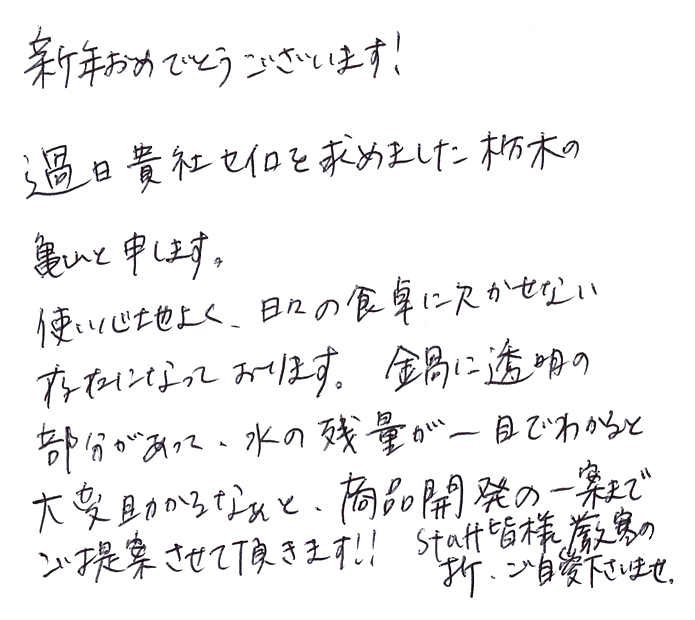 新年おめでとうございます!
過日貴社セイロを求めました栃木の
亀山と申します。
使い心地よく、日々の食卓に欠かせない
存在になっております。 金鍋に透明の
部分があって、水の残量が一目でわかると
大変助かるなぁと、商品開発の一案まで
ご提案させて頂きます!!
staff皆様 厳寒の
折、ご自愛下さいませ。